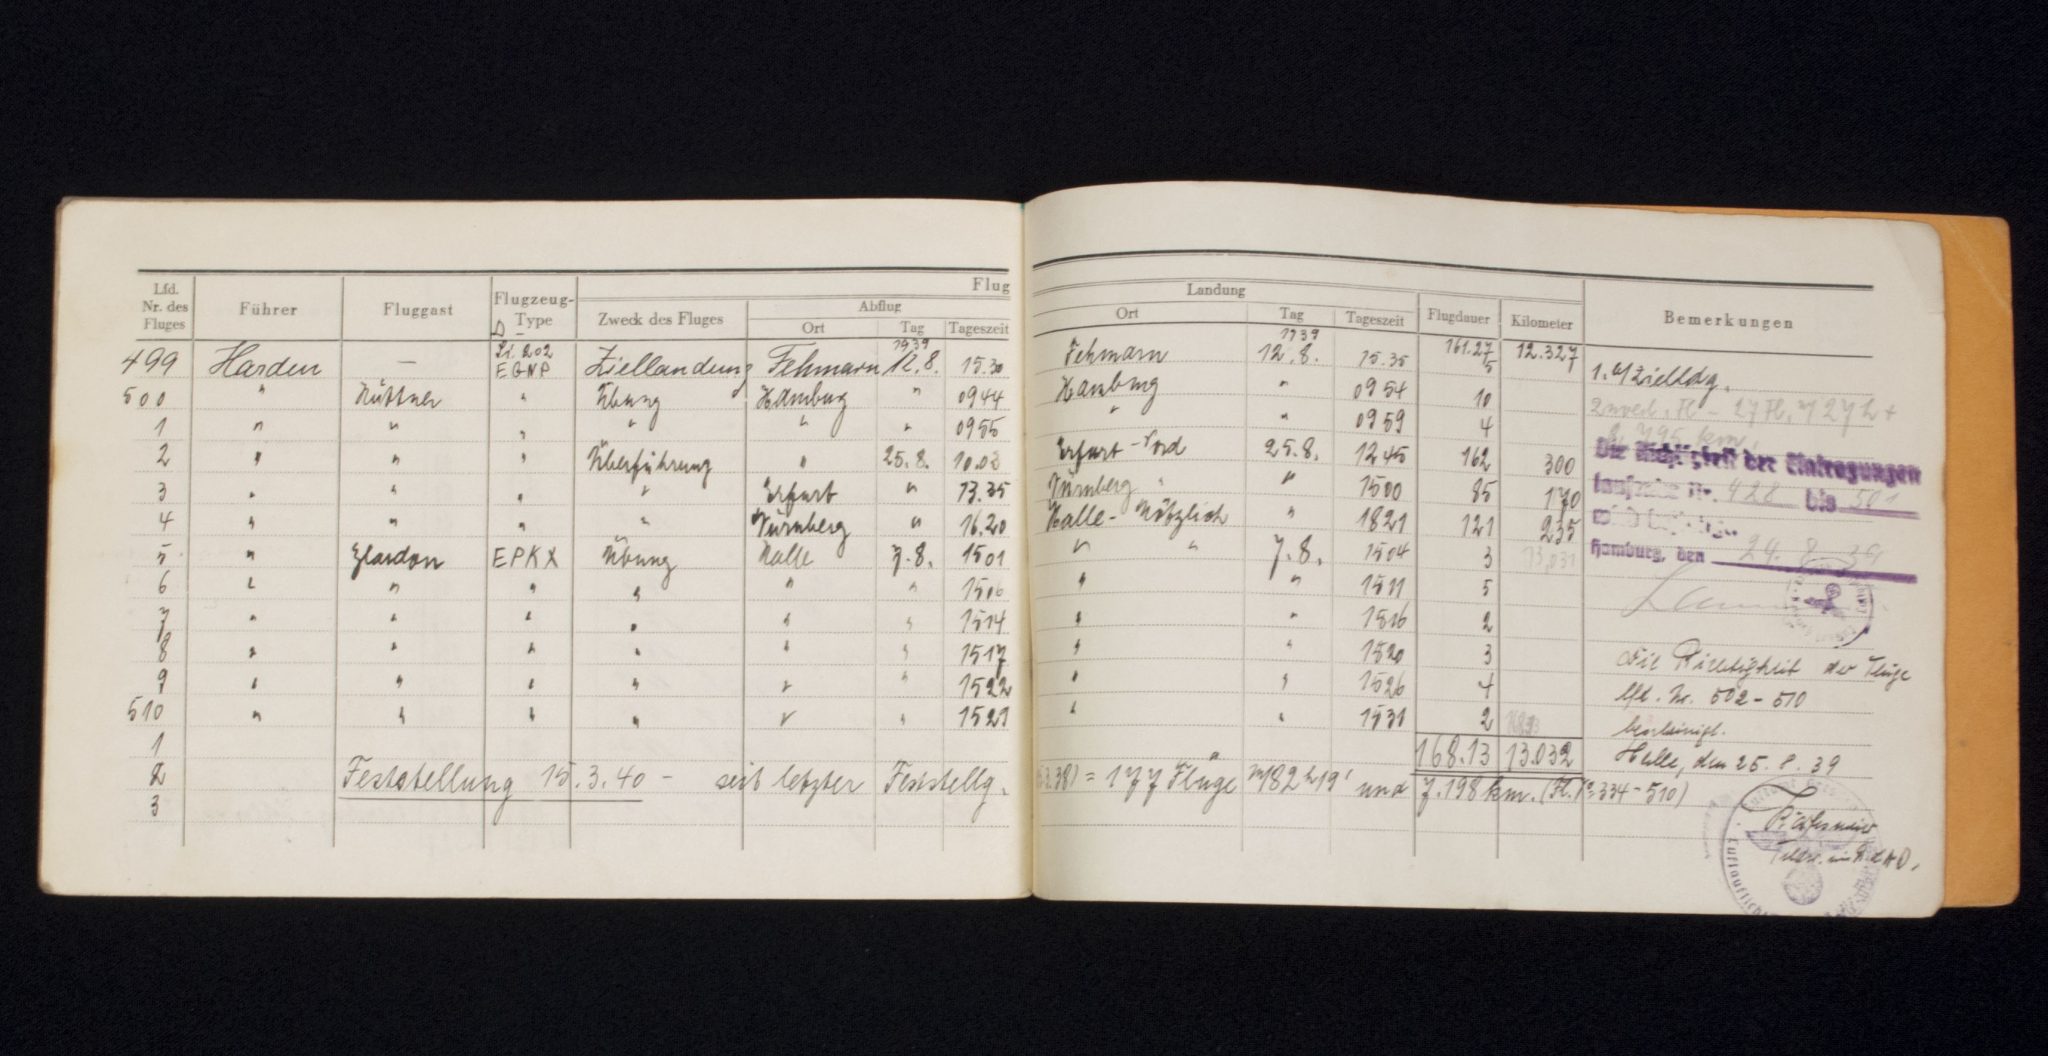 Flug
Lfd. Nr. des Fluges Führer Fluggast Flugzeug-Type Zweck des Fluges Abflug Landung Flugdauer Kilometer Bemerkungen
Ort Tag Tageszeit Ort Tag Tageszeit
D 1939 1939 161.27 12.327
499 Harden — 202 EGNP Ziellandung Fehmarn 12.8. 15.30 Fehmarn 12.8. 15.35 5 1. Zielldg.
500 " Hüttner " Übung Hamburg " 0944 Hamburg " 0954 10
1 " " " " " " 0955 " " 0959 4
2 " " " Überführung " 25.8. 10.03 Erfurt-Nord 25.8. 1245 162 300
3 " " " " Erfurt " 13.35 Nürnberg " 1500 85 170
4 " " " " Nürnberg " 16.20 Halle- " 1821 121 235
5 " EPKX Übung Halle 7.8. 1501 " " 7.8. 1504 3 13,031
6 " " " " " " 1506 " " 1511 5
7 " " " " " " 1514 " " 1516 2
8 " " " " " " 1517 " " 1520 3
9 " " " " " " 1522 " " 1526 4
510 " " " " " " 1529 " " 1531 2
1 168.13 13.032
2 Feststellung 15.3.40 - seit letzter Feststellg. = 177 Flüge 182 h 19' und 7.198 km. 334-510)
3
Die Richtigkeit der Eintragungen
laufende Nr. 428 bis 501
wird
Hamburg, den 24.8.39
Die Richtigkeit der Flüge
lfd. Nr. 502-510
bescheinigt.
Halle, den 25.8.39